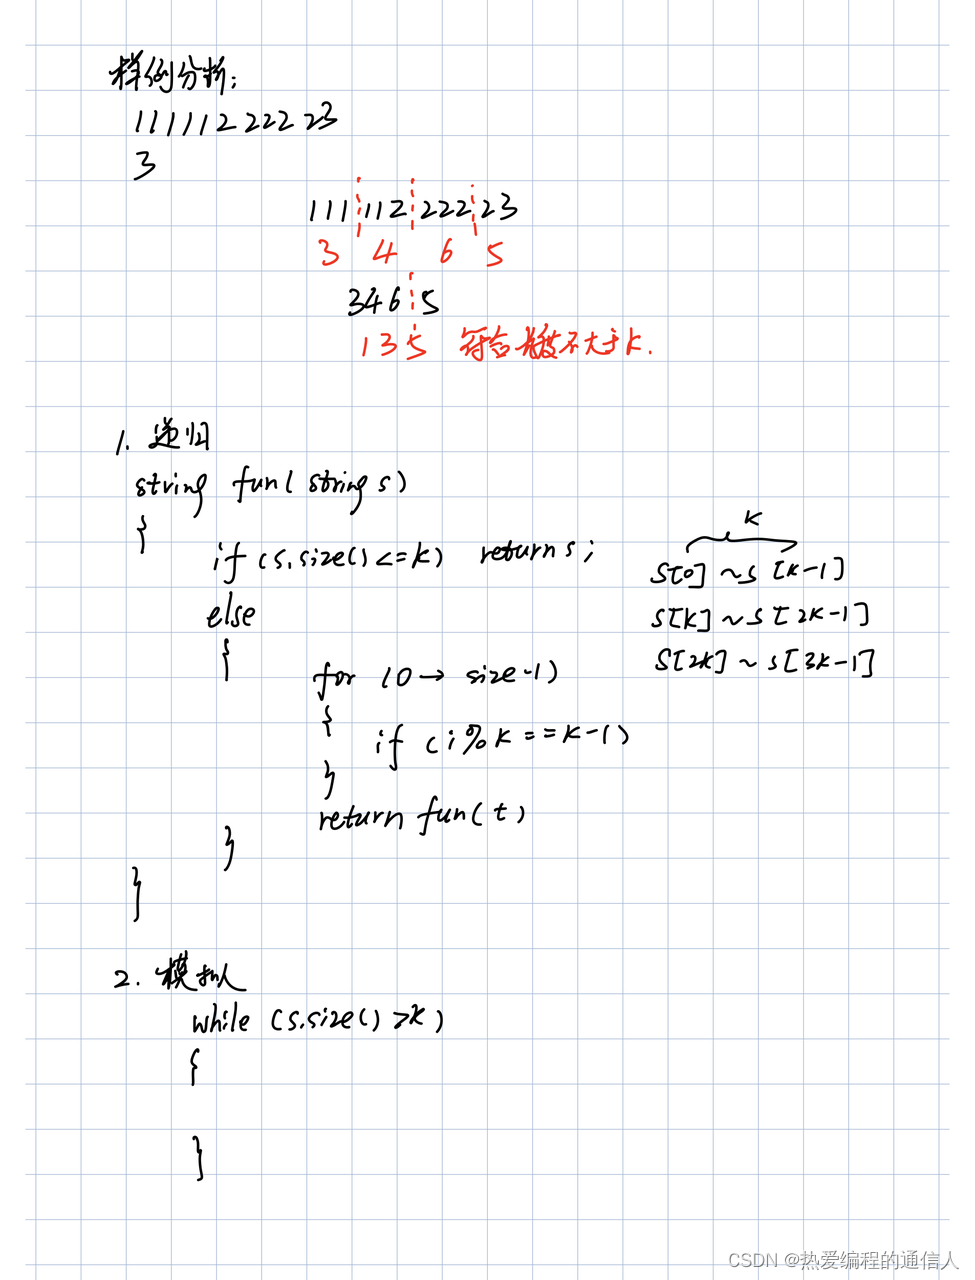 样例分析:
11111222223
3
111 112 222 23
3 4 6 5
346 5
135 符合长度不大于k.
1. 递归
string fun(string s)
{
if (s.size()<=k) return s;
else
{
for (0→size-1)
{
if (i%k==k-1)
}
return fun(t)
}
}
k
s[0]~s[k-1]
s[k]~s[2k-1]
s[2k]~s[3k-1]
2. 模拟
while (s.size()>k)
{
}
CSDN @热爱编程的通信人